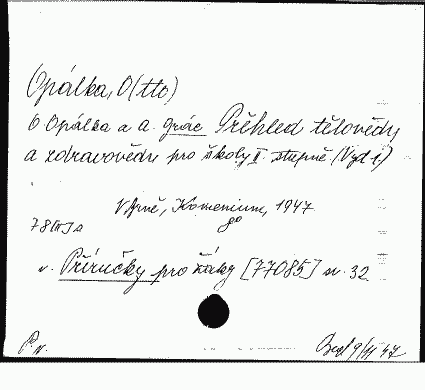 Opálka, O(tto)
O Opálka a A. Grác Přehled tělovědy
a zdravovědy pro školy II. stupně (Vyd 1.)
V Brně, Komenium, 1947
8°
78 [II] s
v. Příručky pro žáky [77085] sv. 32
P. v.
9/II 47